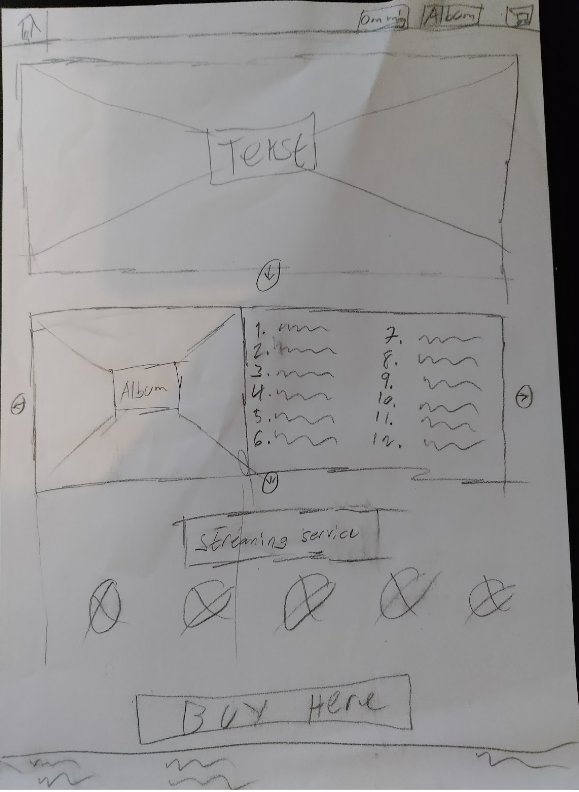 Om mig Album
Tekst
Album
1.
2.
3.
4.
5.
6.
7.
8.
9.
10.
11.
12.
streaming service
BUY Here